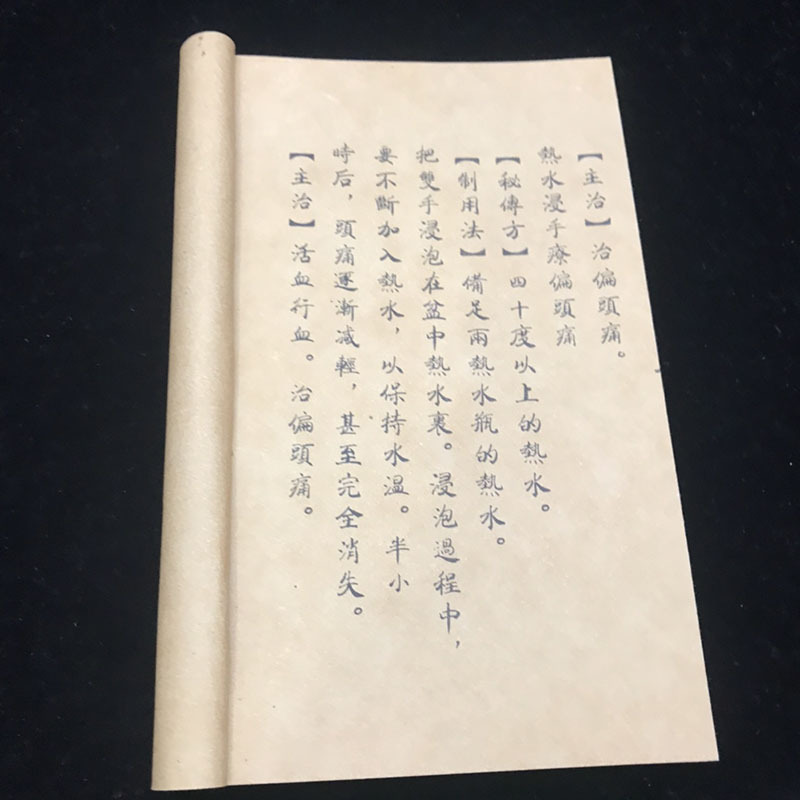 【主治】治偏頭痛。
熱水浸手療偏頭痛
【秘傳方】四十度以上的熱水。
【制用法】備足兩熱水瓶的熱水。
把雙手浸泡在盆中熱水裏。浸泡過程中，
要不斷加入熱水，以保持水溫。半小
時后，頭痛逐漸減輕，甚至完全消失。
【主治】活血行血。治偏頭痛。